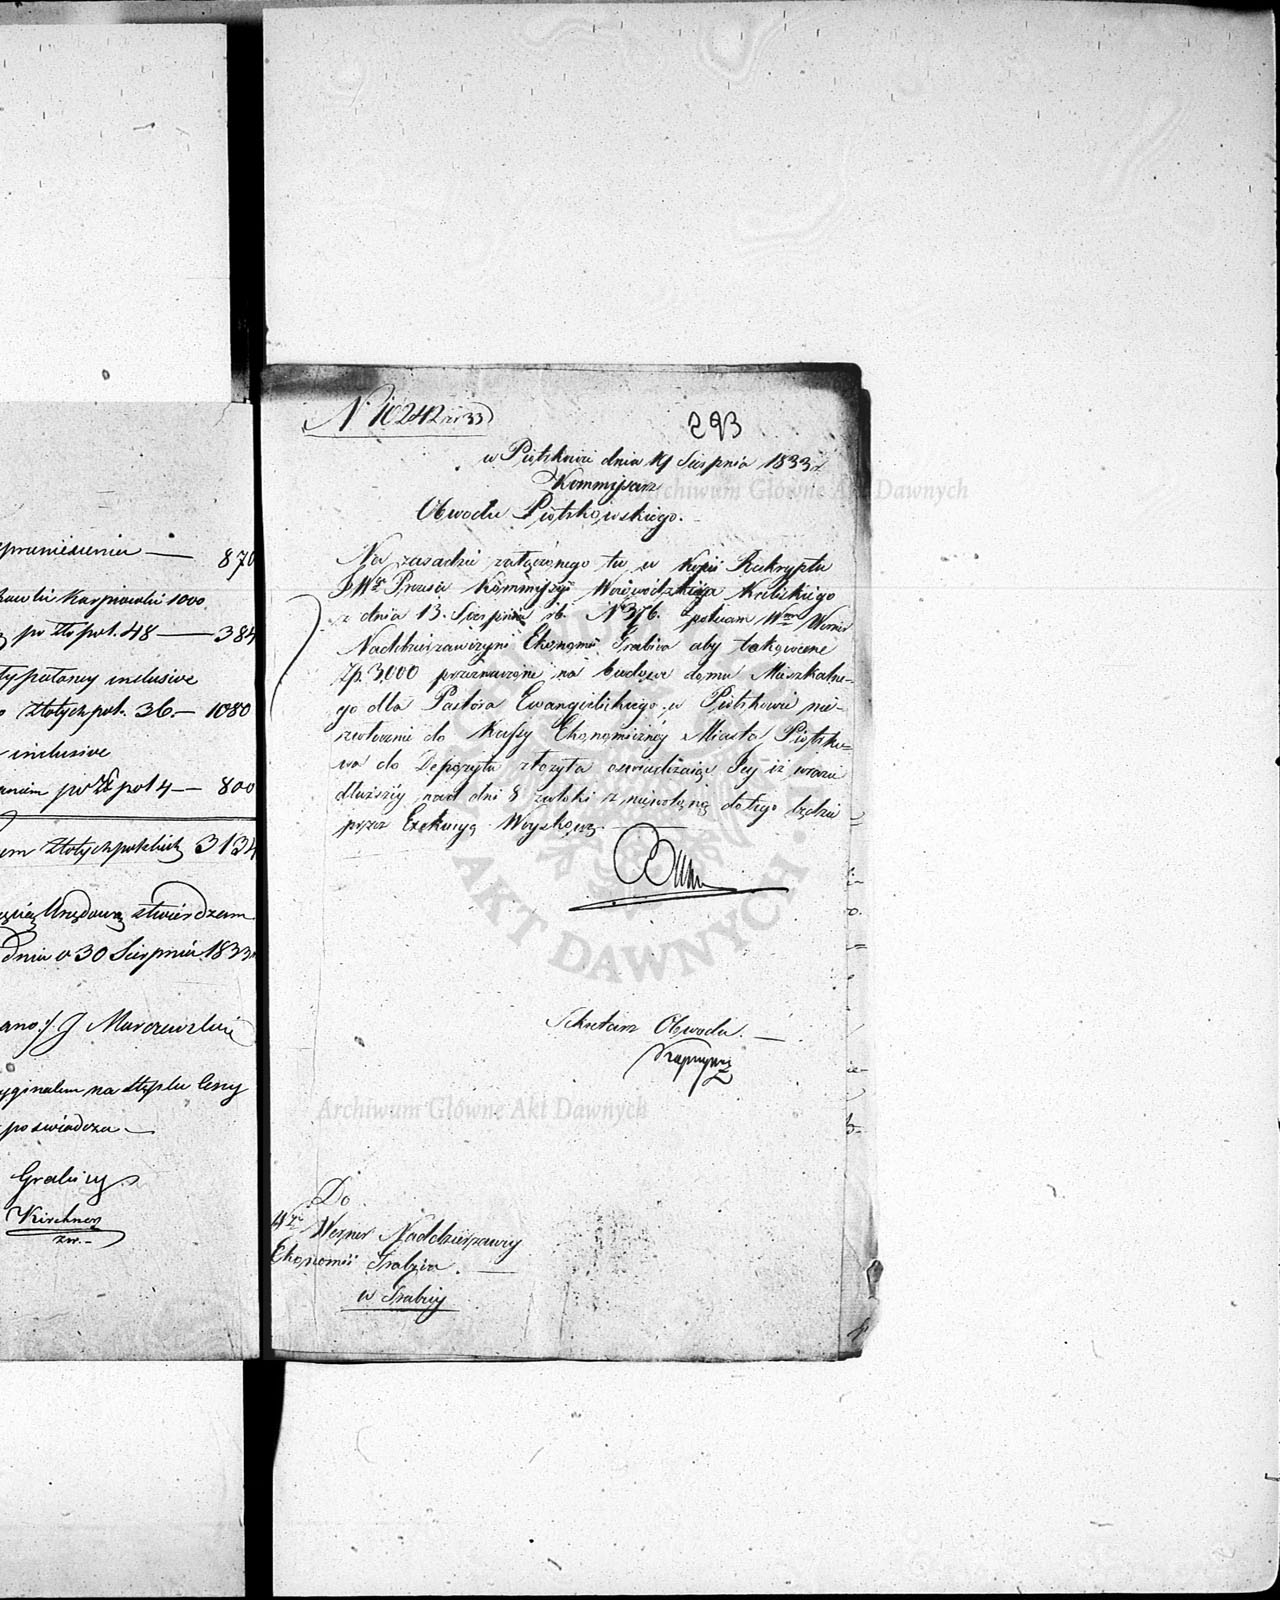 870
1000
po złp pol. 48 — 384
inclusive
Złotych pol. 36. — 1080
inclusive
po Zł pol 4 — 800
Złotych polskich 3134
Urzędową stwierdzam
dnia 30 Sierpnia 1833
J Marczewski
na stęplu ceny
poświadcza —
Grabicy
Kirchner
zw. —
N. 10242 /33
293
w Piotrkowie dnia 19 Sierpnia 1833 r.
Kommisarz
Obwodu Piotrkowskiego.
Na zasadzie załączonego tu w Kopii Reskryptu
JWgo Prezesa Kommissyi Woiewodzkiey Kaliskiego
z dnia 13. Sierpnia rb. N 376. polecam Wmu Werner
Naddzierzawczyni Ekonomii Grabica aby takowe
Zp. 3,000 przeznaczone na budowę domu Mieszkalne-
go dla Pastora Ewangelickiego w Piotrkowie nie-
zwłocznie do Kassy Ekonomiczney Miasta Piotrko-
wa do Depozytu złożyła oswiadczaiąc Jey iż w razie
dłuższey nad dni 8 zwłoki z niewoloną do tego będzie
przez Exekucyą Woyskową.
Sekretarz Obwodu. —
Do
Wej Werner Naddzierzawcy
Ekonomii Grabica. —
w Grabicy
Archiwum Główne Akt Dawnych
Archiwum Główne Akt Dawnych
AKT DAWNYCH